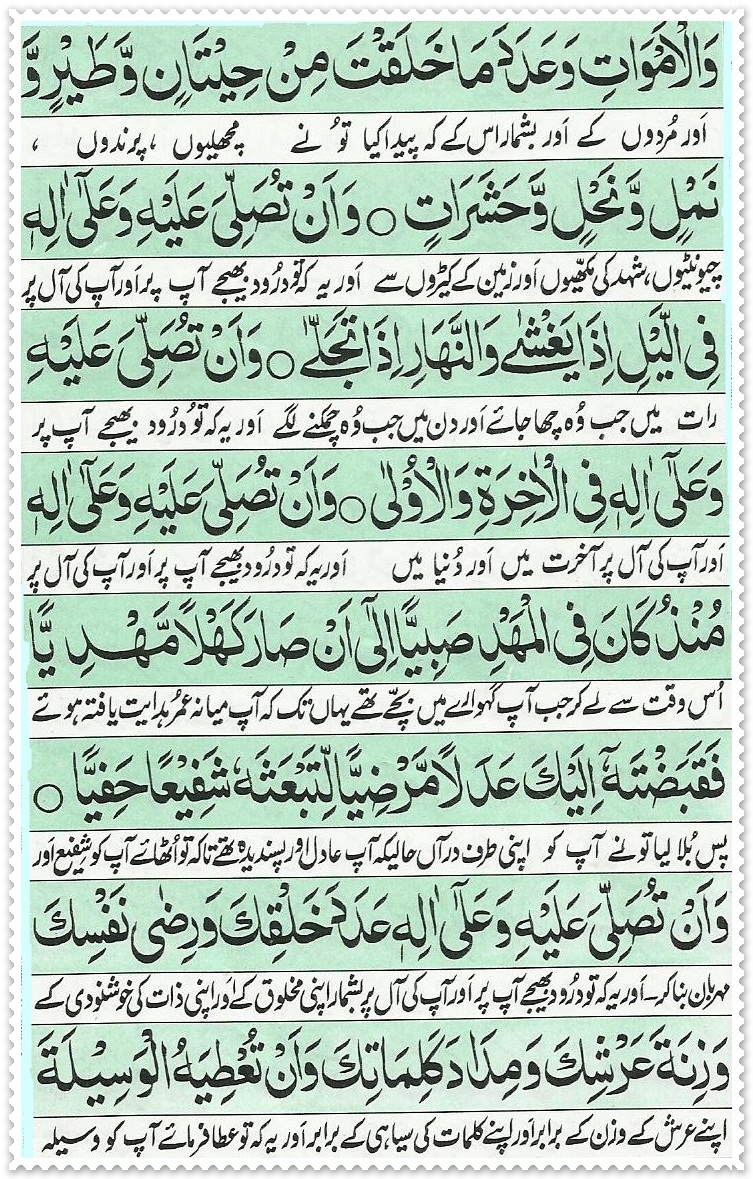 وَالْاَمْوَاتِ وَعَدَدَ مَا خَلَقْتَ مِنْ حِيْتَانٍ وَّطَيْرٍ وَّ
اور مُردوں کے اور بشمار اس کے کہ پیدا کیا تو نے مچھلیوں ، پرندوں ،
نَمْلٍ وَّنَحْلٍ وَّحَشَرَاتٍ ○ وَاَنْ تُصَلِّيَ عَلَيْهِ وَعَلٰٓى اٰلِهٖ
چیونٹیوں، شہد کی مکھیوں اور زمین کے کیڑوں سے اور یہ کہ تو درود بھیجے آپ پر اور آپ کی آل پر
فِى الَّيْلِ اِذَا يَغْشٰى وَالنَّهَارِ اِذَا تَجَلّٰى ○ وَاَنْ تُصَلِّيَ عَلَيْهِ
رات میں جب وُہ چھا جائے اور دن میں جب وُہ چمکنے لگے اور یہ کہ تو دُرود بھیجے آپ پر
وَعَلٰٓى اٰلِهٖ فِى الْاٰخِرَةِ وَالْاُوْلٰى ○ وَاَنْ تُصَلِّيَ عَلَيْهِ وَعَلٰٓى اٰلِهٖ
اور آپ کی آل پر آخرت میں اور دُنیا میں اور یہ کہ تو درود بھیجے آپ پر اور آپ کی آل پر
مُنْذُ كَانَ فِى الْمَهْدِ صَبِيًّا اِلٰٓى اَنْ صَارَ كَهْلًا مَّهْدِيًّا
اُس وقت سے لے کر جب آپ گہوارے میں بچّے تھے یہاں تک کہ آپ میانہ عمر ہدایت یافتہ ہوئے
فَقَبَضْتَهٗٓ اِلَيْكَ عَدَلًا مَّرْضِيًّا لِّتَبْعَثَهٗ شَفِيْعًا حَفِيًّا ○
پس بُلا لیا تو نے آپ کو اپنی طرف درآں حالیکہ آپ عادل اور پسندیدہ تھے تاکہ تو اُٹھائے آپ کو شفیع اور
وَاَنْ تُصَلِّيَ عَلَيْهِ وَعَلٰٓى اٰلِهٖ عَدَدَ خَلْقِكَ وَرِضٰى نَفْسِكَ
مہربان بنا کر ۔ اور یہ کہ تو درود بھیجے آپ پر اور آپ کی آل پر بشمار اپنی مخلوق کے اور اپنی ذات کی خوشنودی کے
وَزِنَةَ عَرْشِكَ وَمِدَادَ كَلِمَاتِكَ وَاَنْ تُعْطِيَهُ الْوَسِيْلَةَ
اپنے عرش کے وزن کے برابر اور اپنے کلمات کی سیاہی کے برابر اور یہ کہ تو عطا فرمائے آپ کو وسیلہ